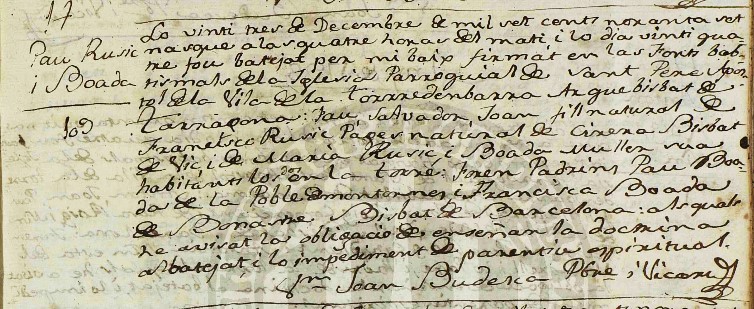 17
Pau Rusic
i Boada
Lo vinti tres de Decembre de mil set cents noranta set
nasque a las quatre horas del mati i lo dia vinti qua
tre fou batejat per mi baix firmat en las Fonts bab
tismals de la Iglesia Parroquial de Sant Pere Apos
tol de la Vila de la Torrredenbarra Arquebisbat de
Tarragona: Pau, Salvador, Joan fill natural de
Francisco Rusic Pages natural de Cirera Bisbat
de Vic i de Maria Rusic, i Boada Muller sua
habitants los dos en la torre: foren Padrins Pau Boa
da de la Pobla de montornes i Francisca Boada
de Bonastre Bisbat de Barcelona: als quals
he avisat la obligacio de enseñar la doctrina
al batejat, i lo impediment de parentiu espiritual.
Joan Budesca Pbre i Vicari